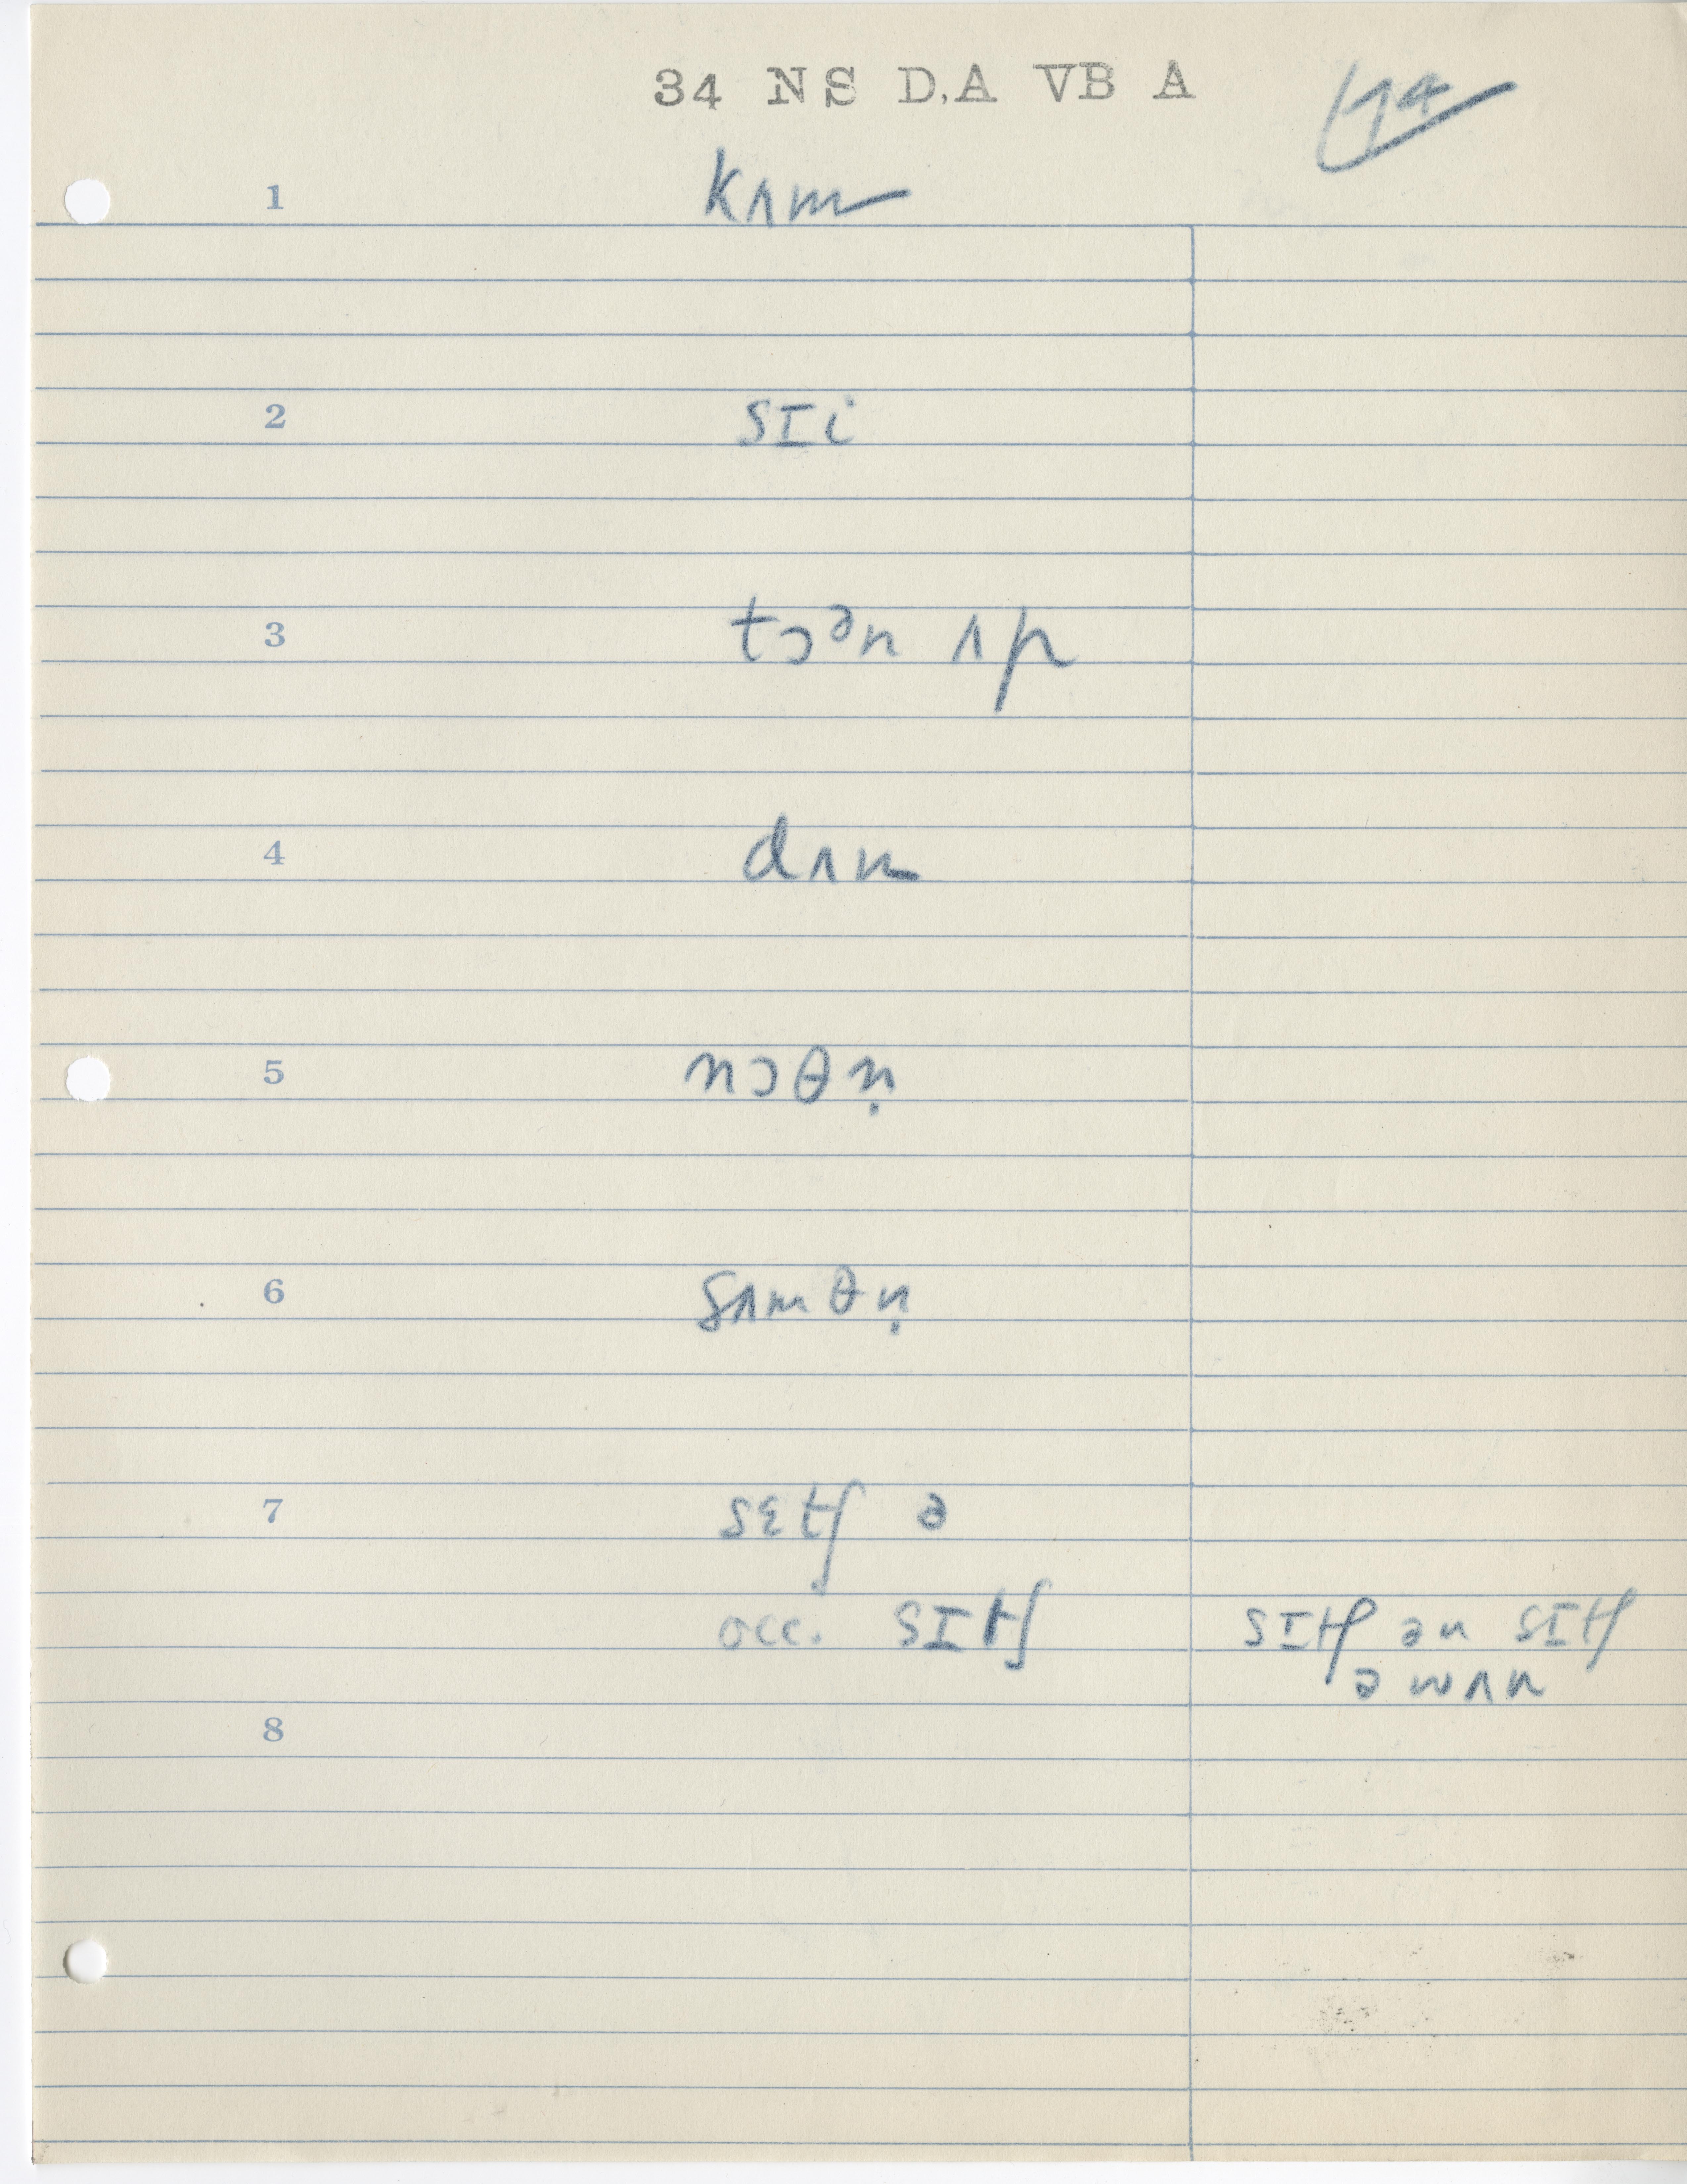 34 NS D.A VB A
1 kʌm
2 sIi
3 tɔᵊn ʌp
4 dʌn
5 nɔθṇ
6 sʌmθṇ
7 sɛtʃ ə
occ. sItʃ sItʃ ən sItʃ
ə wʌn
8